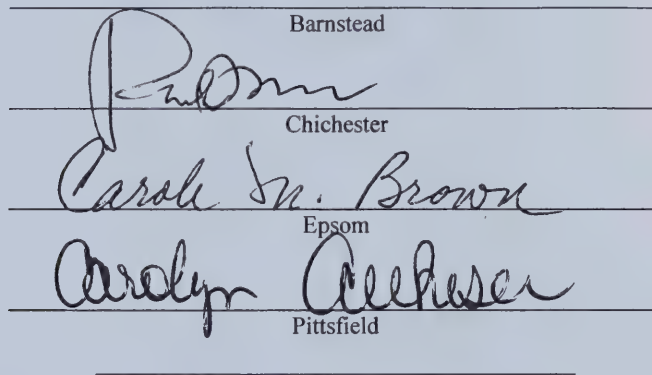 Barnstead
Chichester
Carole M. Brown
Epsom
Carolyn
Pittsfield